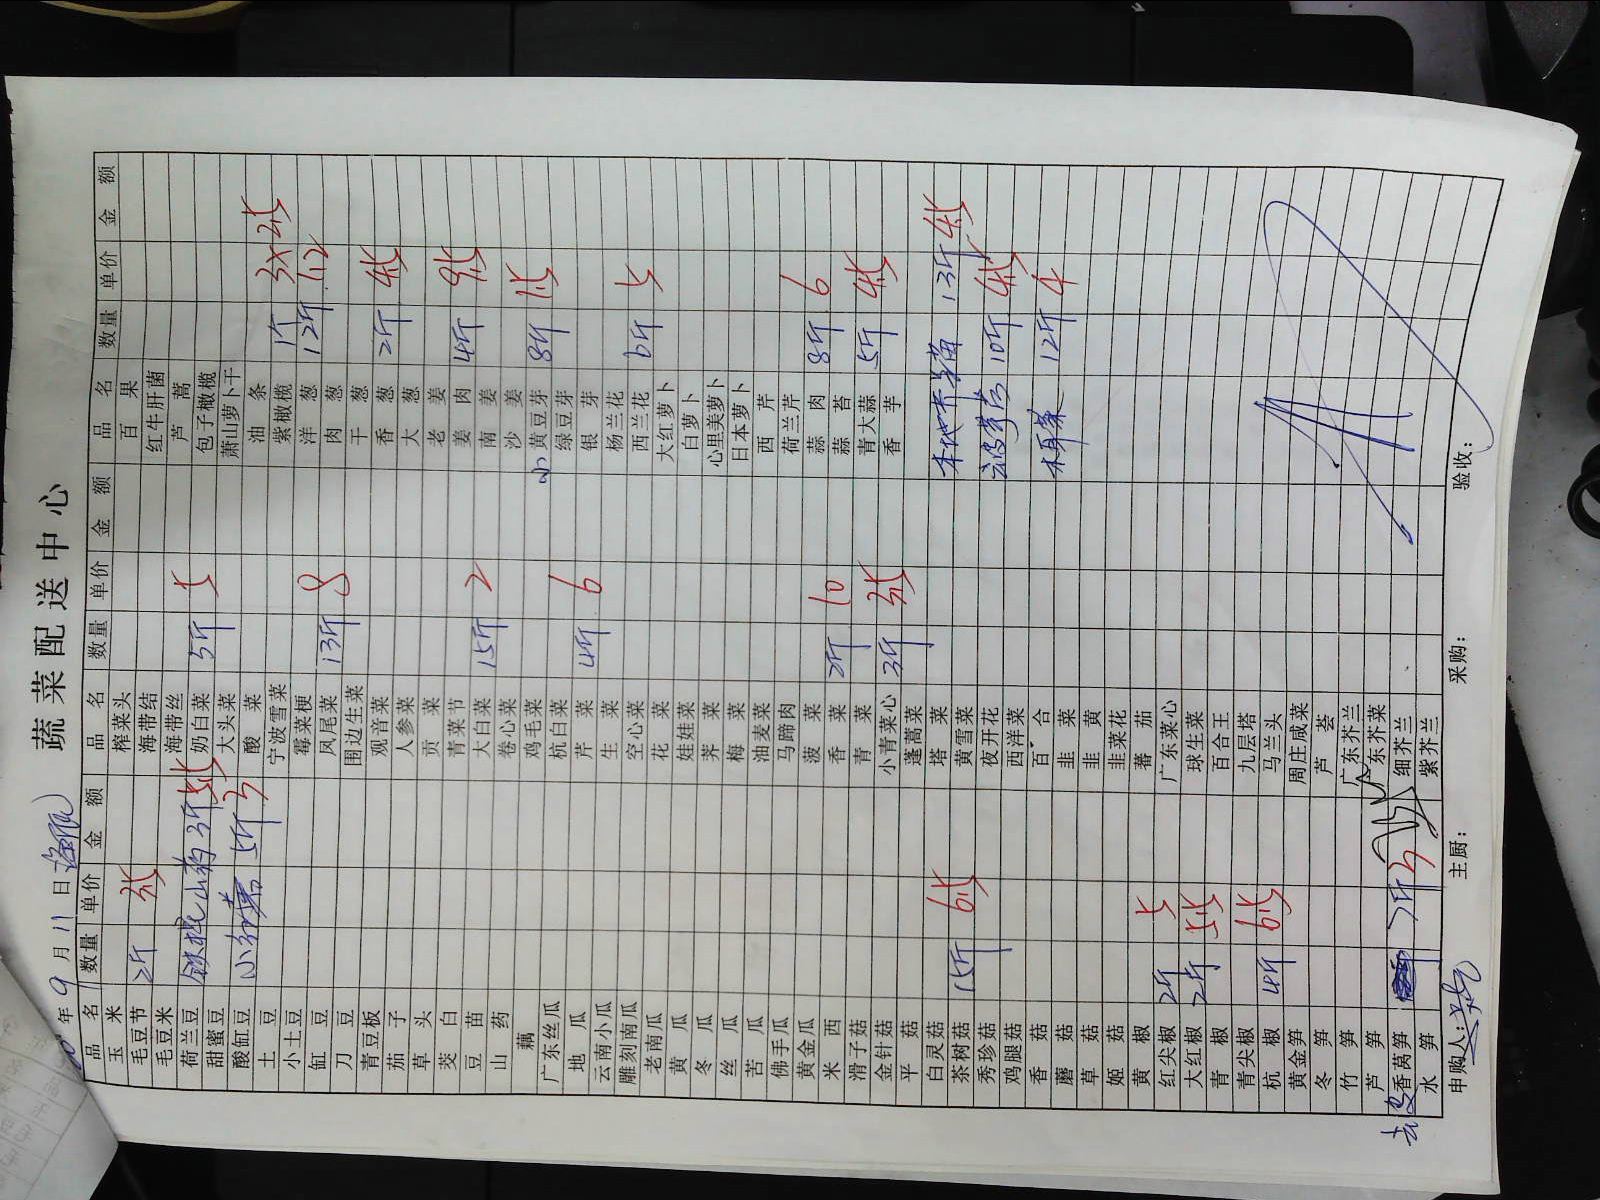 蔬菜配送中心
年 9 月 11 日
品名 数量 单价 金额 品名 数量 单价 金额 品名 数量 单价 金额
玉米 榨菜头 百果
毛豆节 2斤 海带结 红牛肝菌
毛豆米 海带丝 芦蒿
荷兰豆 铁棍山药 3斤 奶白菜 5斤 包子橄榄
甜蜜豆 大头菜 萧山萝卜干
酸缸豆 5斤 3 酸菜 油条
土豆 宁波雪菜 紫橄榄 1斤
小土豆 霉菜梗 洋葱 12斤 1.2
缸豆 凤尾菜 13斤 8 肉葱
刀豆 围边生菜 干葱
青豆板 观音菜 香葱 2斤
茄子 人参菜 大葱
草头 贡菜 老姜
茭白 青菜节 姜肉 4斤
豆苗 大白菜 15斤 2 南姜
山药 卷心菜 沙姜
藕 鸡毛菜 小黄豆芽 8斤
广东丝瓜 杭白菜 绿豆芽
地瓜 芹菜 4斤 6 银芽
云南小瓜 生菜 杨兰花
雕刻南瓜 空心菜 西兰花 6斤
老南瓜 花菜 大红萝卜
黄瓜 娃娃菜 白萝卜
冬瓜 荠菜 心里美萝卜
丝瓜 梅菜 日本萝卜
苦瓜 油麦菜 西芹
佛手瓜 马蹄肉 荷兰芹
黄金瓜 菠菜 蒜肉 8斤 6
米西 香菜 2斤 10 蒜苔
滑子菇 青菜 青大蒜 5斤
金针菇 小青菜心 3斤 香芋
平菇 蓬蒿菜
白灵菇 塔菜 13斤
茶树菇 15斤 黄雪菜
秀珍菇 夜开花 10斤
鸡腿菇 西洋菜
香菇 百合 木耳菜 12斤 4
蘑菇 韭菜
草菇 韭黄
姬菇 韭菜花
黄椒 蕃茄
红尖椒 2斤 广东菜心
大红椒 2斤 球生菜
青椒 百合王
青尖椒 九层塔
杭椒 4斤 马兰头
黄金笋 周庄咸菜
冬笋 芦荟
竹笋 广东芥兰
芦笋 东芥菜
香莴笋 7斤 3 细芥兰
水笋 紫芥兰
申购人: 主厨: 采购: 验收: